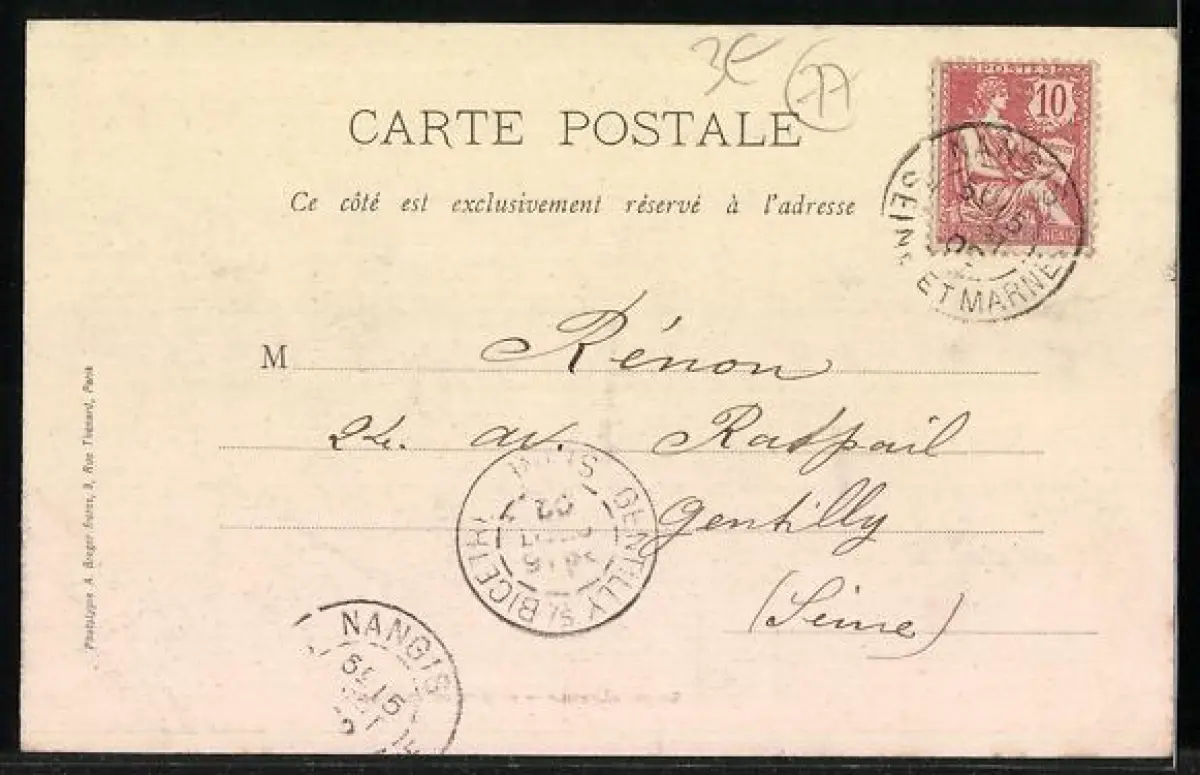 3€ 77
POSTES
10
CARTE POSTALE
Ce côté est exclusivement réservé à l'adresse
NANGIS
SEINE ET MARNE
M Rénon
24. av. Raspail
Gentilly
(Seine)
GENTILLY
BICETRE
SEINE
02
NANGIS
15
Phototypie A. Breger frères, 9, Rue Thénard, Paris